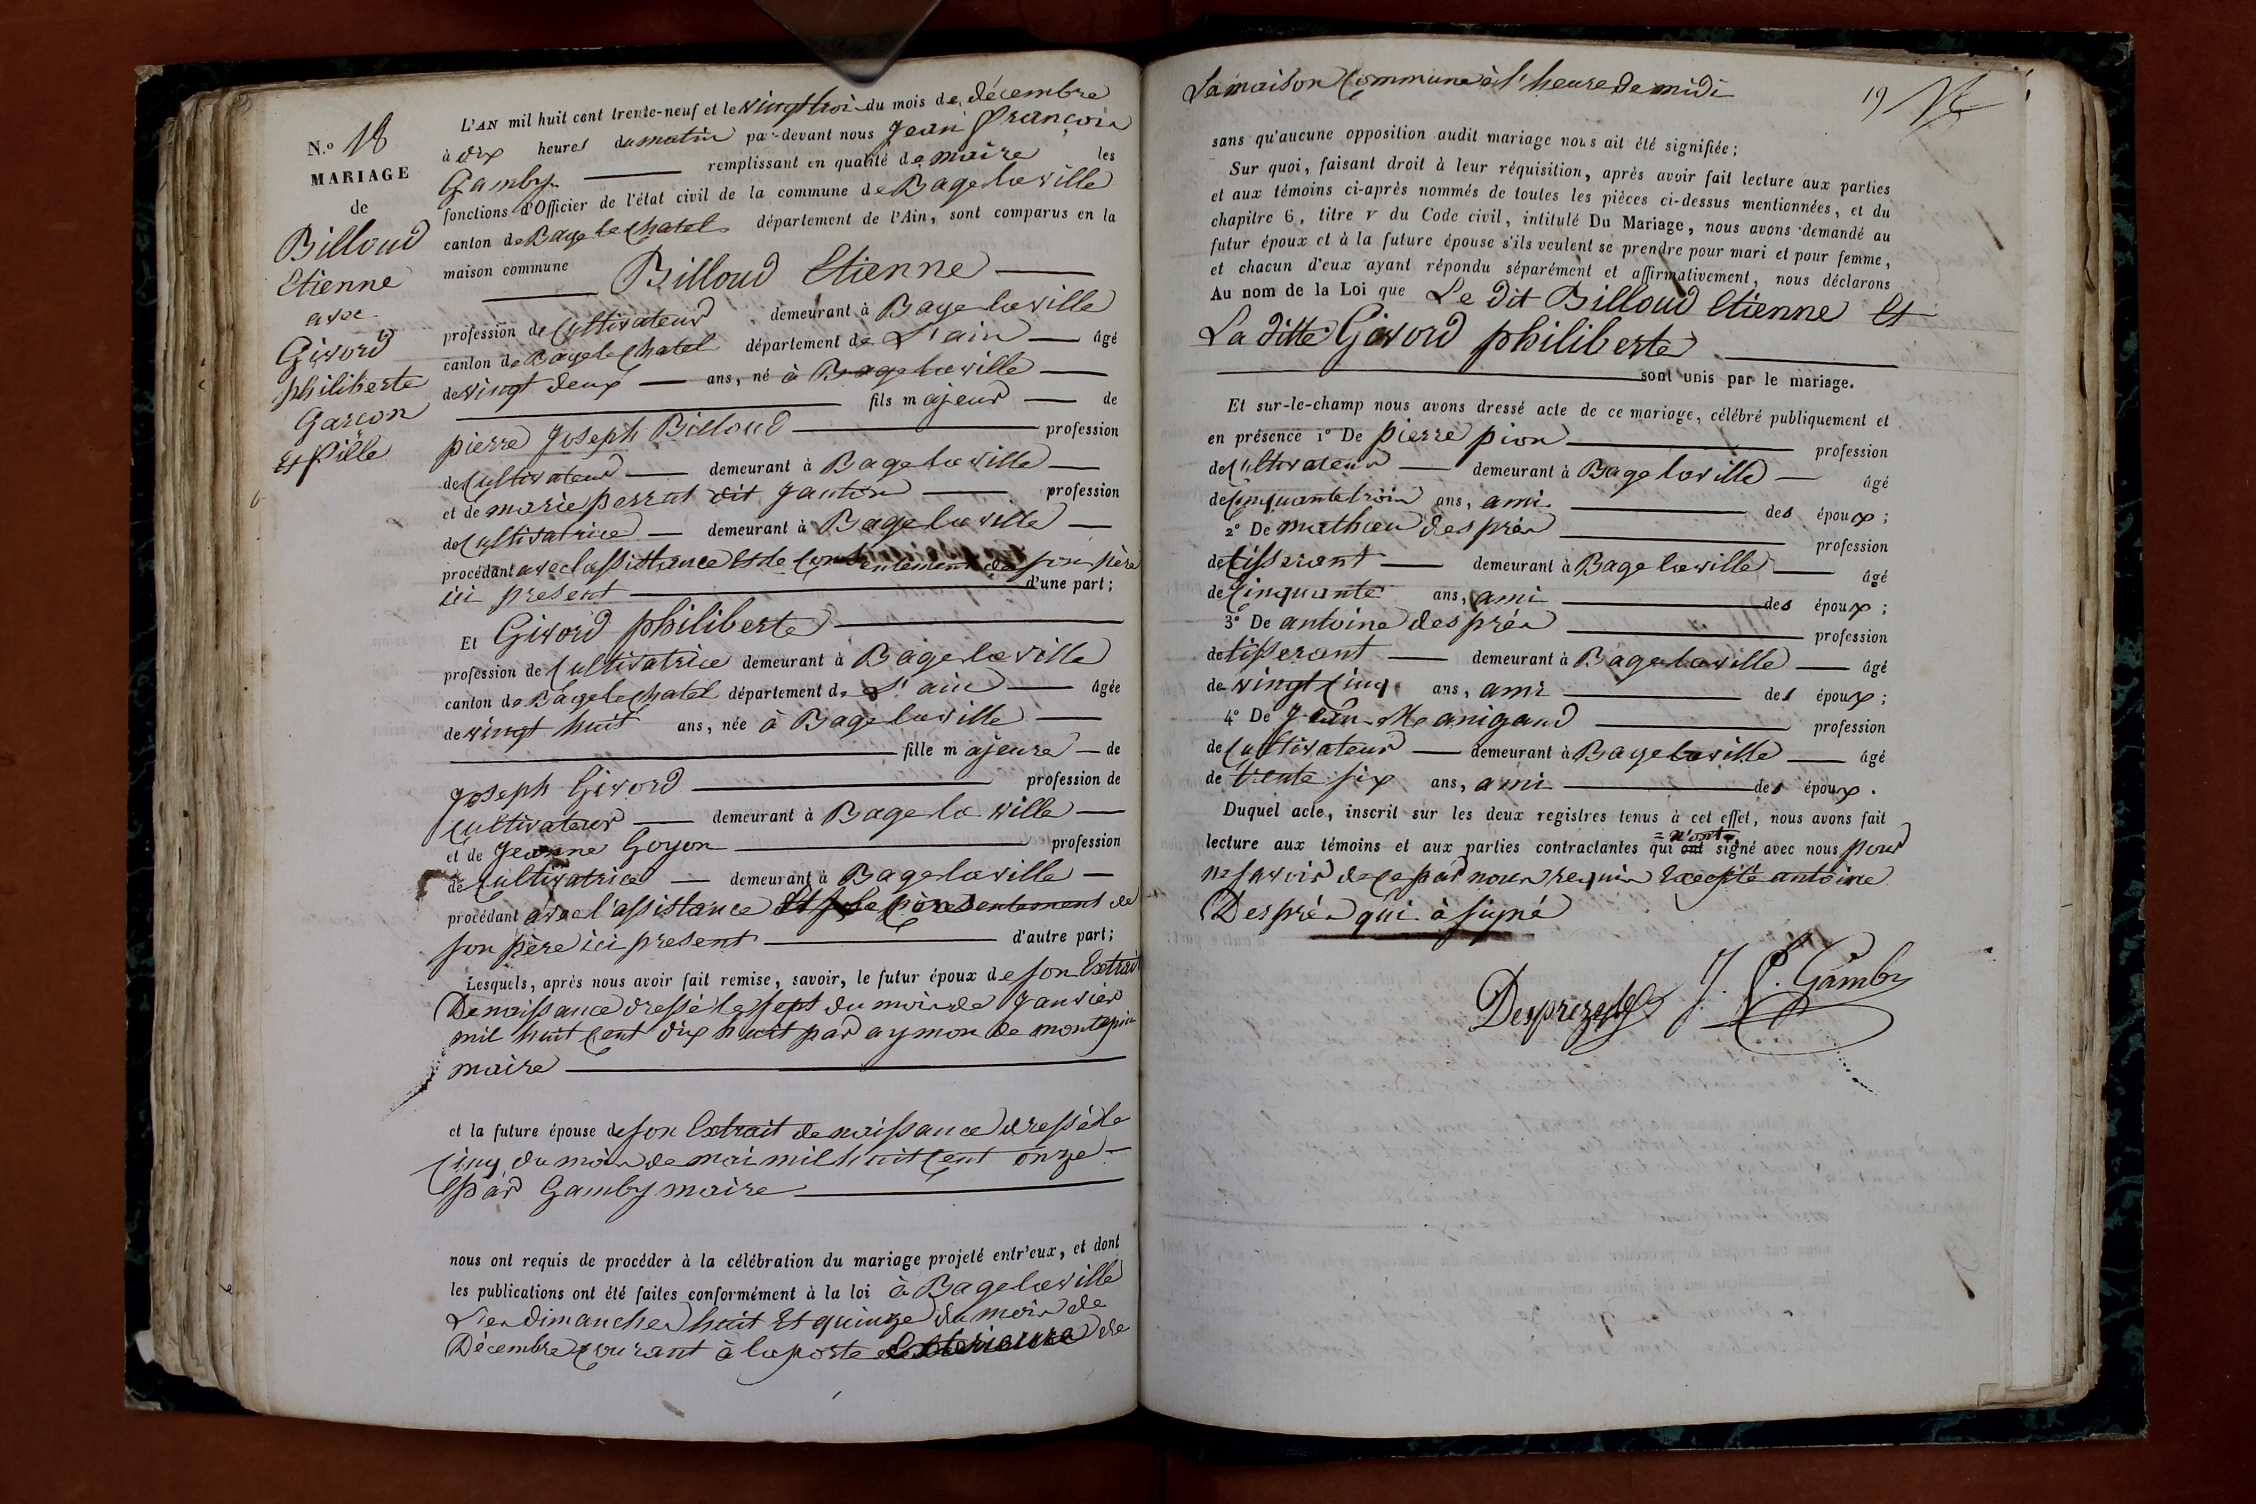 N.o 18
MARIAGE
de
Billoud
Etienne
avec
Givord
philiberte
Garçon
et fille
L'AN mil huit cent trente-neuf et le vingt troi du mois de décembre
à dix heures du matin par-devant nous Jean françois
Gamby remplissant en qualité de maire les
fonctions d'Officier de l'état civil de la commune de Bage la ville
canton de Bage le chatel département de l'Ain, sont comparus en la
maison commune Billoud Etienne
profession de Cultivateur demeurant à Bage la ville
canton de Bage le chatel département de L'ain âgé
de vingt deux ans, né à Bage la ville
fils majeur de
pierre Joseph Billoud profession
de Cultivateur demeurant à Bage la ville
et de marie perrat dit Jantin profession
de Cultivatrice demeurant à Bage la ville
procédant avec l'assistance et le Consentement de son père
ici present d'une part;
Et Givord philiberte
profession de Cultivatrice demeurant à Bage la ville
canton de Bage le chatel département de L'ain âgée
de vingt huit ans, née à Bage la ville
fille majeure de
Joseph Givord profession de
Cultivateur demeurant à Bage la ville
et de Jeanne Goyon profession
de Cultivatrice demeurant à Bage la ville
procédant avec l'assistance Et le Consentement de
son père ici present d'autre part;
Lesquels, après nous avoir fait remise, savoir, le futur époux de son Extrait
De naissance dressé le sept du mois de Janvier
mil huit Cent dix huit par aymon de montepin
maire
et la future épouse de son Extrait de naissance dressé le
Cinq du mois de mai mil huit Cent onze
par Gamby maire
nous ont requis de procéder à la célébration du mariage projeté entr'eux, et dont
les publications ont été faites conformément à la loi à Bage la ville
Les dimanches huit Et quinze du mois de
Décembre Courant à la porte Exterieure de
La maison Commune à l'heure de midi
19
sans qu'aucune opposition audit mariage nous ait été signifiée;
Sur quoi, faisant droit à leur réquisition, après avoir fait lecture aux parties
et aux témoins ci-après nommés de toutes les pièces ci-dessus mentionnées, et du
chapitre 6, titre v du Code civil, intitulé Du Mariage, nous avons demandé au
futur époux et à la future épouse s'ils veulent se prendre pour mari et pour femme,
et chacun d'eux ayant répondu séparément et affirmativement, nous déclarons
Au nom de la Loi que Le dit Billoud Etienne Et
La ditte Givord philiberte
sont unis par le mariage.
Et sur-le-champ nous avons dressé acte de ce mariage, célébré publiquement et
en présence 1° De pierre pion profession
de Cultivateur demeurant à Bage la ville âgé
de Cinquante trois ans, ami des époux;
2° De mathieu després profession
de tisserant demeurant à Bage la ville âgé
de Cinquante ans, ami des époux;
3° De antoine després profession
de tisserant demeurant à Bage la ville âgé
de vingt Cinq ans, ami des époux;
4° De Jean Manigand profession
de Cultivateur demeurant à Bage la ville âgé
de trente six ans, ami des époux.
Duquel acte, inscrit sur les deux registres tenus à cet effet, nous avons fait
= n'ont
lecture aux témoins et aux parties contractantes qui ont signé avec nous pour
ne savoir de ce par nous requis Excepté antoine
Després qui à signé
Desprez J. f. Gamby